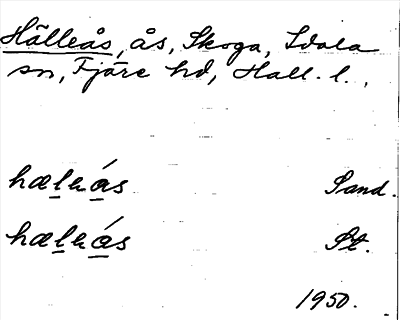 Hälleås, ås, Skoga, Idala
sn, Fjäre hd, Hall. l.
hælɐås Sand.
hælɐås St.
1950.